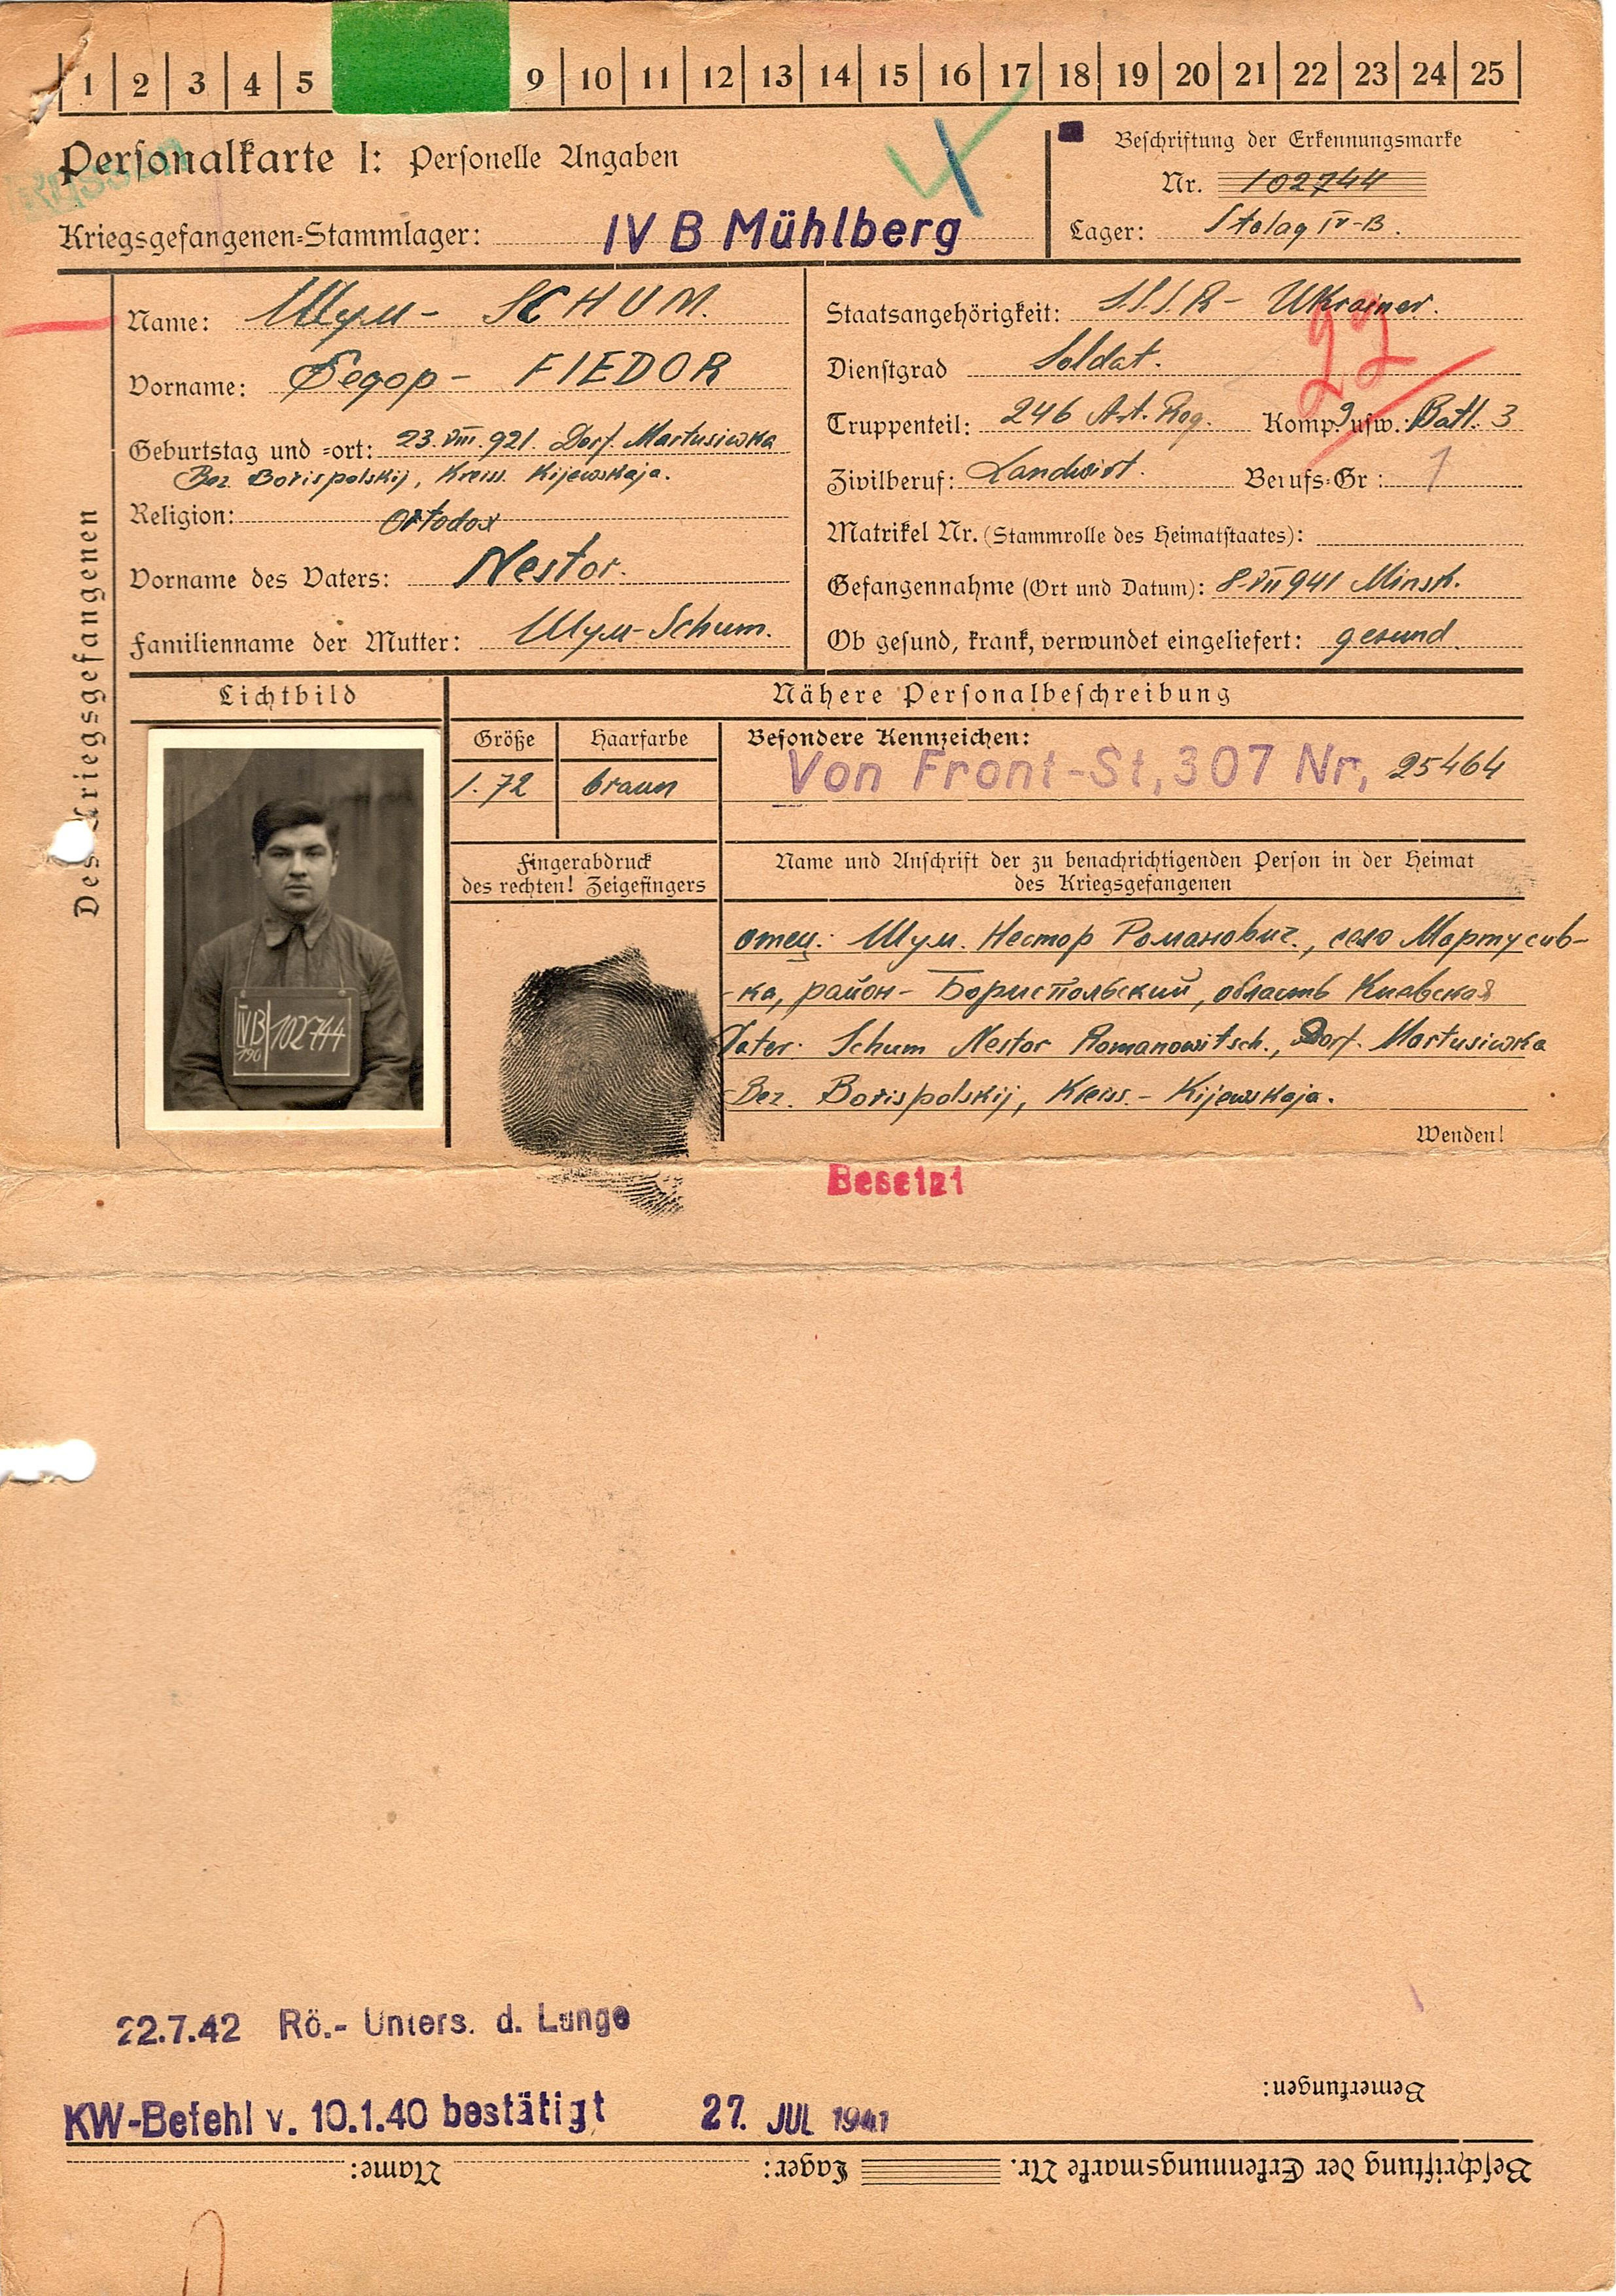 1 2 3 4 5 9 10 11 12 13 14 15 16 17 18 19 20 21 22 23 24 25
Personalkarte I: Personelle Angaben
Russen
Kriegsgefangenen-Stammlager: IV B Mühlberg
Beschriftung der Erkennungsmarke
Nr. 102744
Lager: Stalag IV-B.
Des Kriegsgefangenen
Name: Шум- SCHUM.
Vorname: Федор- FIEDOR
Geburtstag und -ort: 23.VIII.921. Dorf. Martusiwka
Bez. Borispolskij, Kreiss. Kijewskaja.
Religion: Ortodox
Vorname des Vaters: Nestor.
Familienname der Mutter: Шум-Schum.
Staatsangehörigkeit: S.S.S.R- Ukrainer.
22
Dienstgrad Soldat.
Truppenteil: 246 Art. Reg. Komp. usw.: Batl. 3
Zivilberuf: Landwirt. Berufs-Gr.: 1
Matrikel Nr. (Stammrolle des Heimatstaates):
Gefangennahme (Ort und Datum): 8-VII 941 Minsk.
Ob gesund, krank, verwundet eingeliefert: gesund.
Lichtbild
IVB 102744
190
Nähere Personalbeschreibung
Größe Haarfarbe Besondere Kennzeichen:
1.72 braun Von Front-St, 307 Nr, 25464
Fingerabdruck
des rechten! Zeigefingers
Name und Anschrift der zu benachrichtigenden Person in der Heimat
des Kriegsgefangenen
отец: Шум. Нестор Романович., село Мартусив-
-ка, район- Бориспольский, область Киевская
Vater: Schum Nestor Romanowitsch., Dorf. Martusiwka
Bez. Borispolskij, Kreiss.- Kijewskaja.
Wenden!
22.7.42 Rö.- Unters. d. Lunge
Bemerkungen:
KW-Befehl v. 10.1.40 bestätigt 27. JUL 1941
Beschriftung der Erkennungsmarke Nr. Lager: Name: